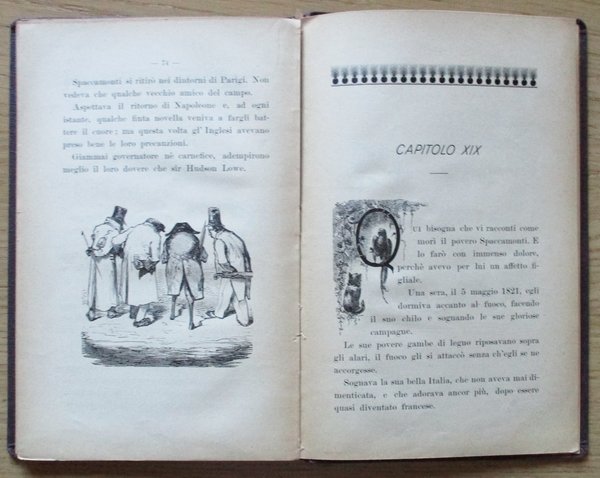 — 74 —
Spaccamonti si ritirò nei dintorni di Parigi. Non
vedeva che qualche vecchio amico del campo.
Aspettava il ritorno di Napoleone e, ad ogni
istante, qualche finta novella veniva a fargli bat-
tere il cuore; ma questa volta gl' Inglesi avevano
preso bene le loro precauzioni.
Giammai governatore nè carnefice, adempirono
meglio il loro dovere che sir Hudson Lowe.
CAPITOLO XIX
QUI bisogna che vi racconti come
morì il povero Spaccamonti. E
lo farò con immenso dolore,
perchè avevo per lui un affetto fi-
gliale.
Una sera, il 5 maggio 1821, egli
dormiva accanto al fuoco, facendo
il suo chilo e sognando le sue gloriose
campagne.
Le sue povere gambe di legno riposavano sopra
gli alari, il fuoco gli si attaccò senza ch'egli se ne
accorgesse.
Sognava la sua bella Italia, che non aveva mai di-
menticata, e che adorava ancor più, dopo essere
quasi diventato francese.